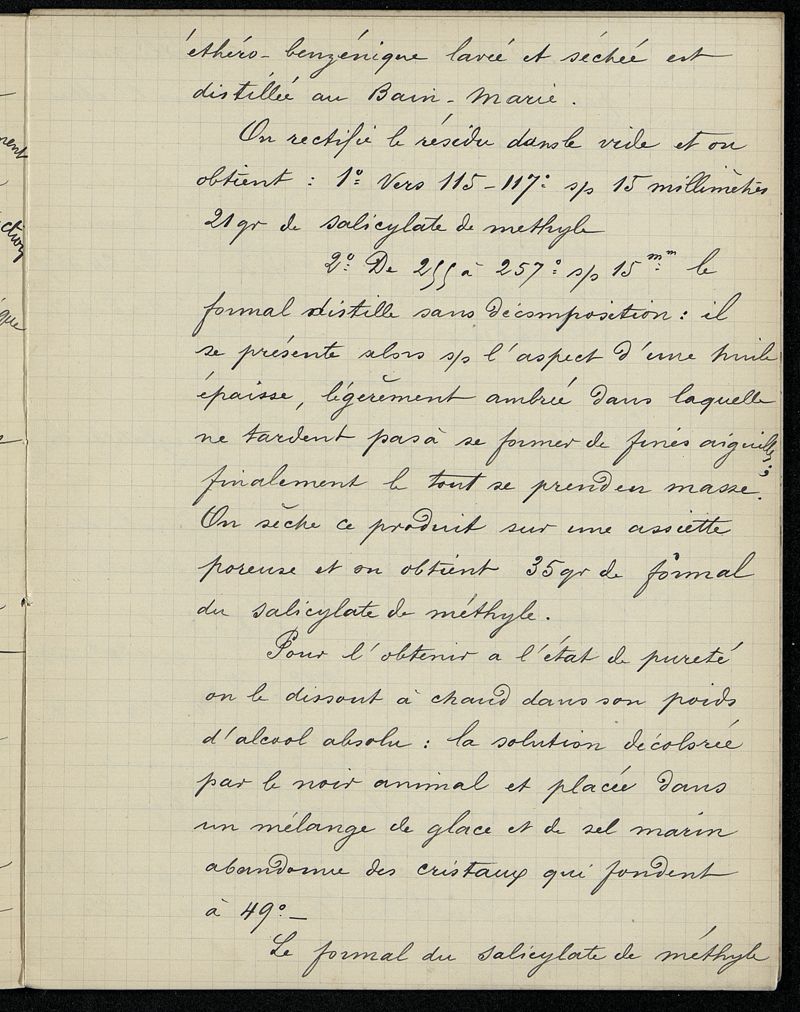 éthéro-benzénique lavée et séchée est
distillée au Bain-Marie.
On rectifie le résidu dans le vide et on
obtient : 1° Vers 115-117° s/s 15 millimètres
21 gr de salicylate de methyle
2° De 255 à 257° s/s 15 mm le
formal distille sans décomposition : il
se présente alors s/s l'aspect d'une huile
épaisse, légèrement ambrée dans laquelle
ne tardent pas à se former de fines aiguilles ;
finalement le tout se prend en masse.
On sèche ce produit sur une assiette
poreuse et on obtient 35 gr de formal
du salicylate de méthyle.
Pour l'obtenir a l'état de pureté
on le dissout à chaud dans son poids
d'alcool absolu : la solution décolorée
par le noir animal et placée dans
un mélange de glace et de sel marin
abandonne des cristaux qui fondent
à 49°-
Le formal du salicylate de méthyle